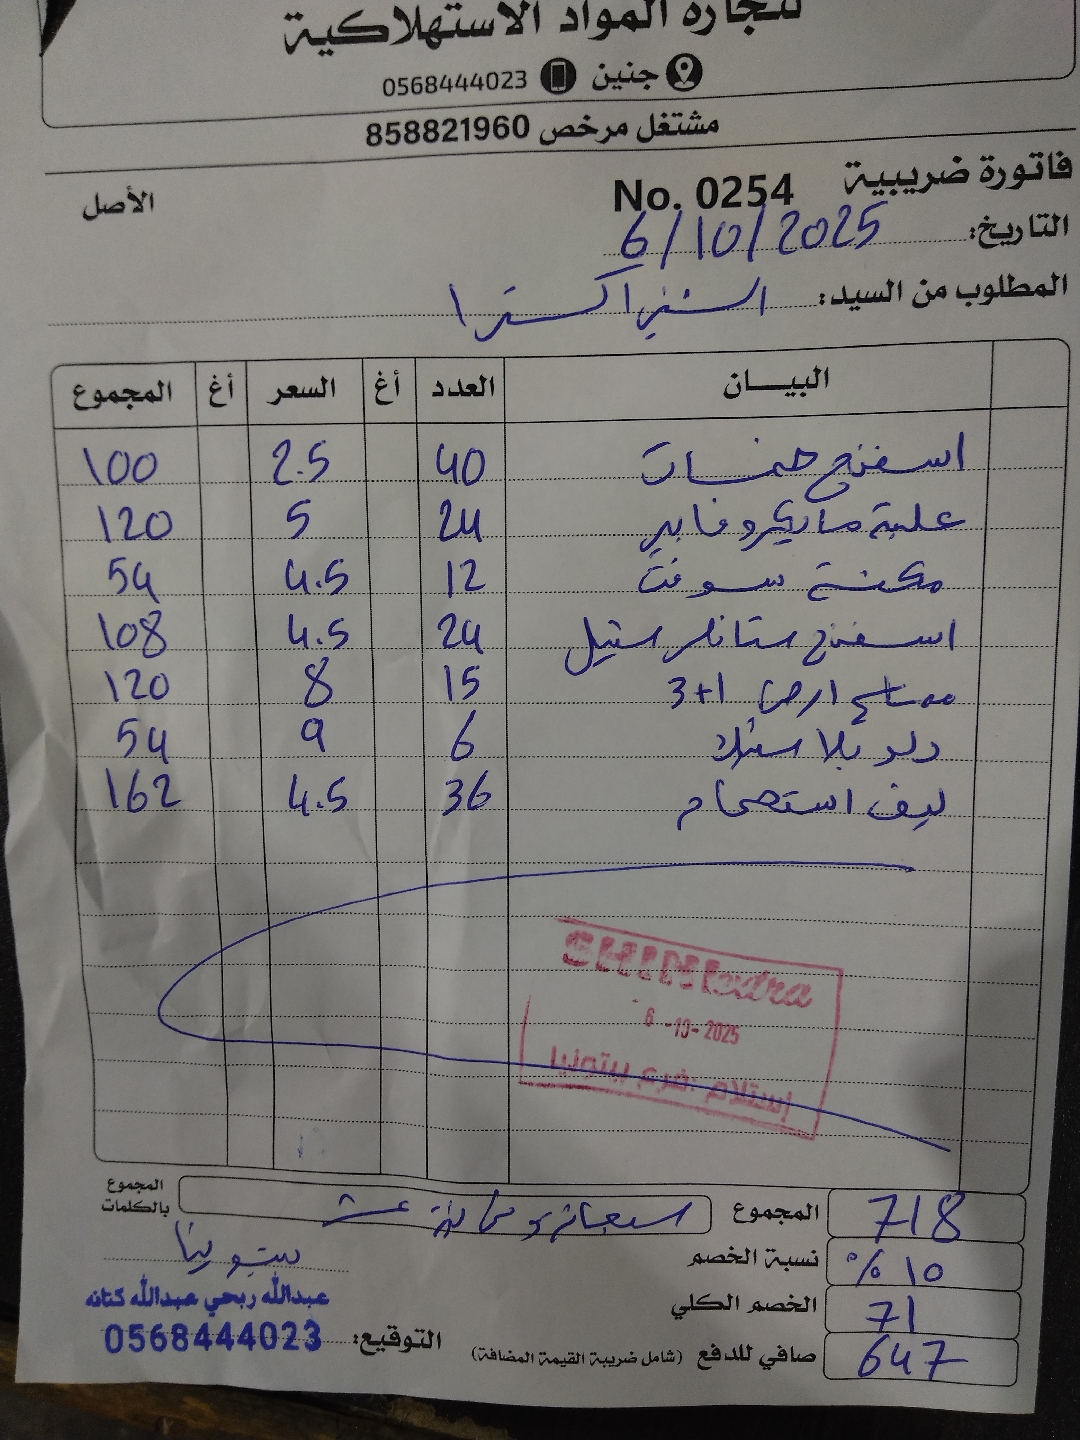 لتجارة المواد الاستهلاكية
جنين 0568444023
مشتغل مرخص 858821960
فاتورة ضريبية No. 0254 الأصل
التاريخ: 6/10/2025
المطلوب من السيد: الشني اكسترا
البيـــان العدد أغ السعر أغ المجموع
اسفنج حمسات 40 2.5 100
علبة مايكروفايبر 24 5 120
مكنسة سوفت 12 4.5 54
اسفنج ستانلس ستيل 24 4.5 108
ممسحة ارض 3+1 15 8 120
دلو بلاستيك 6 9 54
ليف استحمام 36 4.5 162
SHINI extra
6-10-2025
إستلام فرع بيتونيا
المجموع 718
المجموع بالكلمات سبعمائة وثمانية عشر
نسبة الخصم 10 %
بيتونيا
الخصم الكلي 71
عبدالله ربحي عبدالله كتانه
صافي للدفع (شامل ضريبة القيمة المضافة) 647
التوقيع: 0568444023